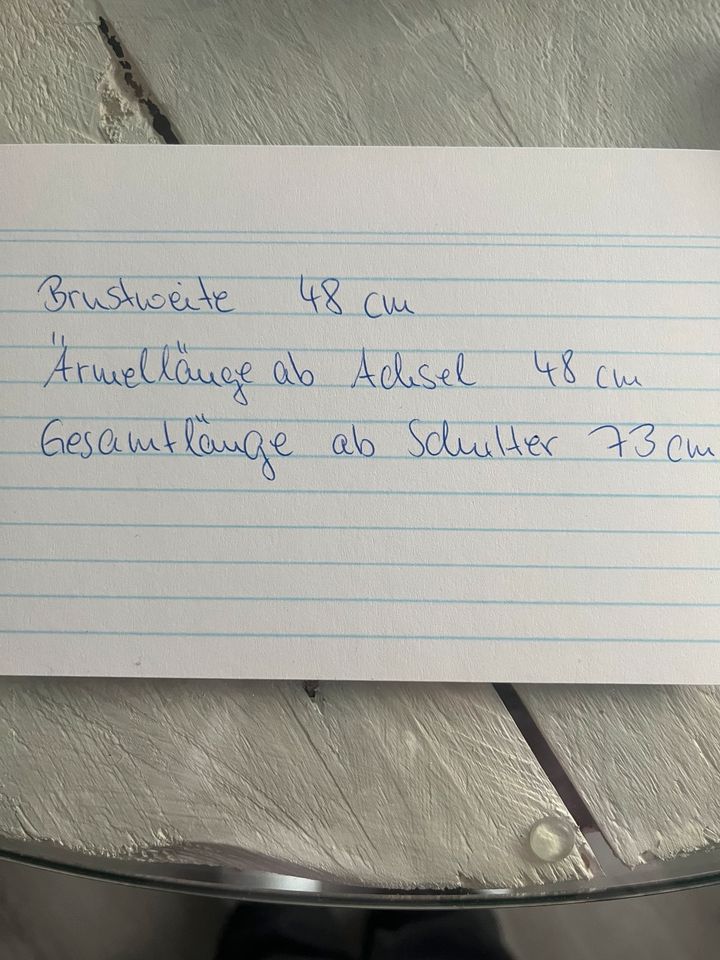 Brustweite 48 cm
Ärmellänge ab Achsel 48 cm
Gesamtlänge ab Schulter 73 cm